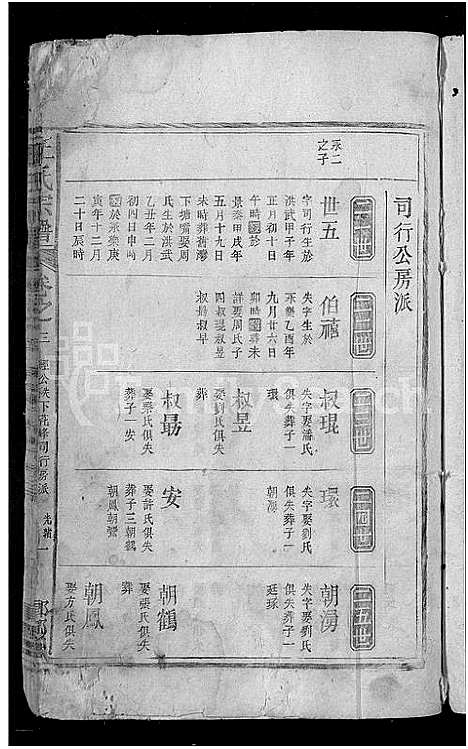 司行公房派
永二
之子
世五
字司行生於
洪武甲子年
正月初十日
午時
景泰甲戌年
五月十九日
未時葬舊灣
下塘嘴娶周
氏生於洪武
乙丑年二月
初四日申時
於永樂庚
寅年十二月
二十日辰時
伯福
失字生於
永樂乙酉年
九月廿六日
卯時葬未
詳娶周氏子
四叔琨叔昱
叔勗叔早
二三世
叔琨
失字娶潘氏
俱失葬子一
環
叔昱
失字娶劉氏
俱失
葬
叔勗
娶梁氏俱失
葬子一安
二四世
環
失字娶劉氏
俱失葬子一
朝湧
安
娶許氏俱失
葬子三朝鶴
朝鳳朝鸞
二五世
朝湧
失字娶劉氏
俱失葬子一
廷琢
朝鶴
娶張氏俱失
葬
朝鳳
娶方氏俱失
氏宗譜
卷之二
經公秩下花峰司行房派
光緒